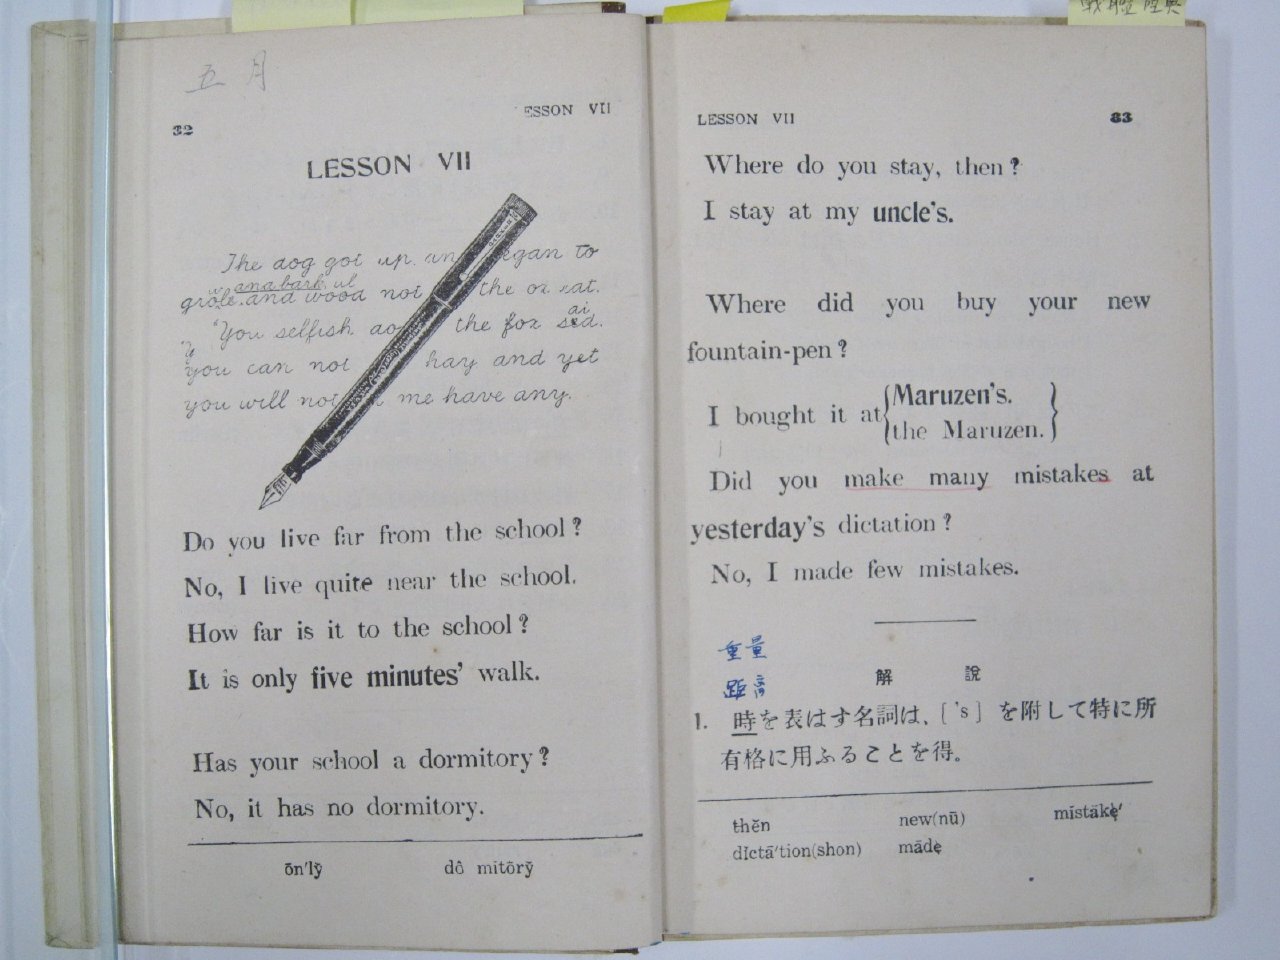 五月
32
ESSON VII
LESSON VII
The dog got up and egan to
and bark, ul
grole. and wood not the ox eat.
"You selfish dog the fox said.
ai
you can not hay and yet
you will not me have any.
Do you live far from the school?
No, I live quite near the school.
How far is it to the school?
It is only five minutes' walk.
Has your school a dormitory?
No, it has no dormitory.
ōn'lў dô mitŏrў
戦艦陸奥
LESSON VII 33
Where do you stay, then?
I stay at my uncle's.
Where did you buy your new
fountain-pen?
I bought it at { Maruzen's.
the Maruzen. }
Did you make many mistakes at
yesterday's dictation?
No, I made few mistakes.
重量
距离
解 說
1. 時を表はす名詞は、['s] を附して特に所
有格に用ふることを得。
thĕn new(nū) mĭstāke'
dĭctā'tion(shon) māde